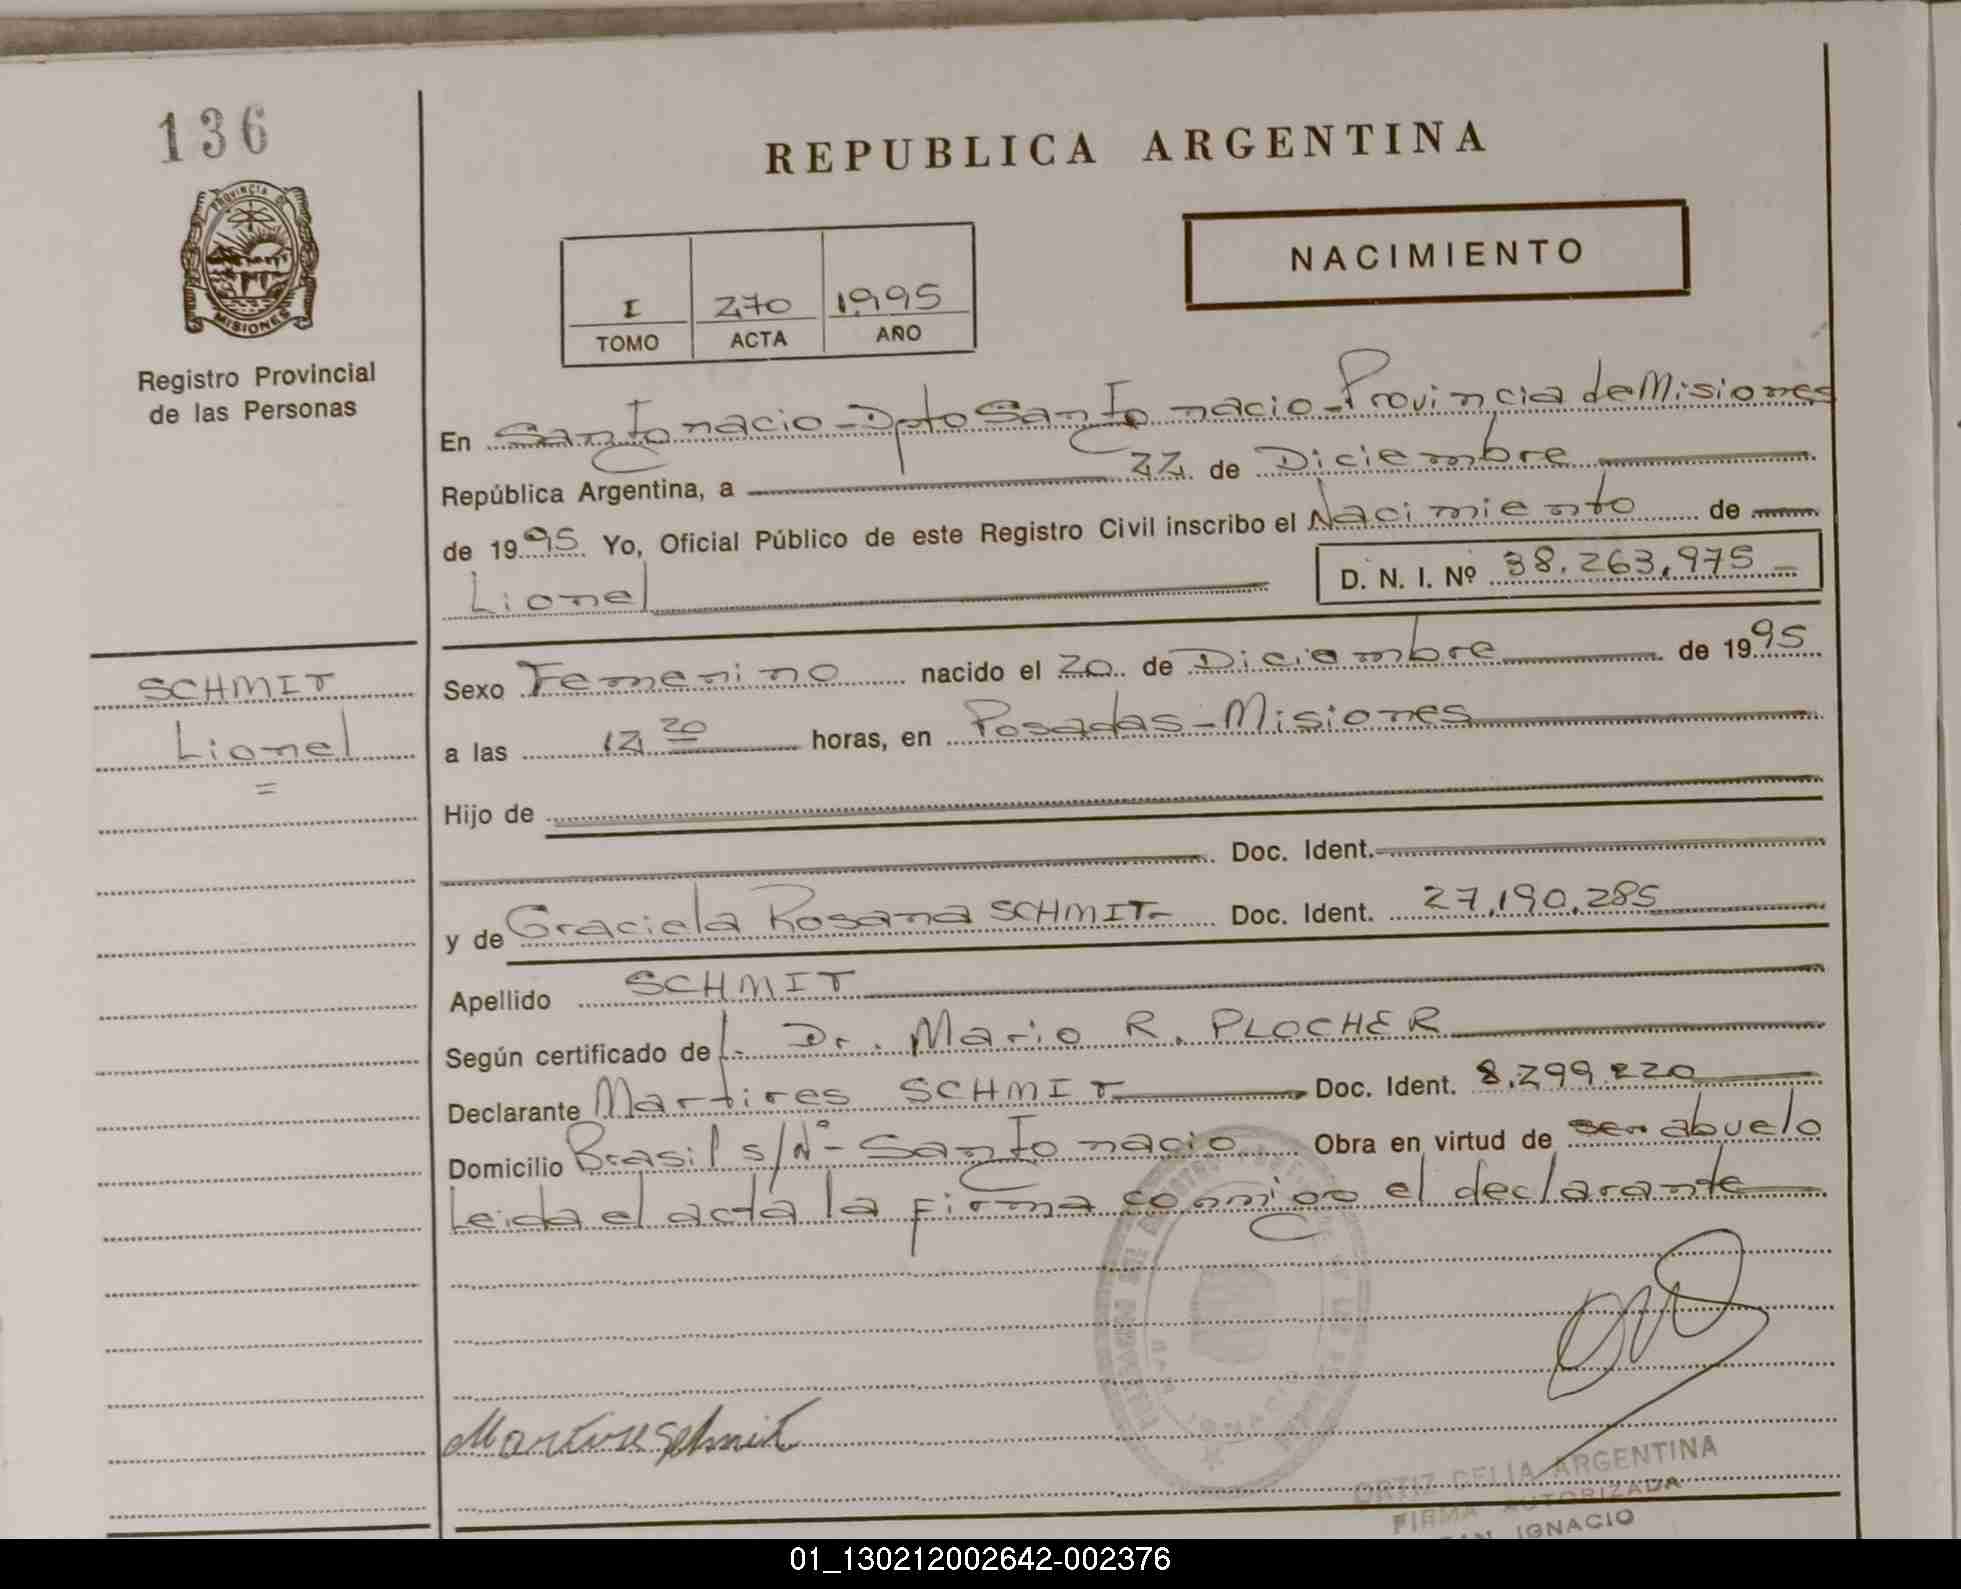 136
PROVINCIA DE
MISIONES
Registro Provincial
de las Personas
REPUBLICA ARGENTINA
NACIMIENTO
I 270 1995
TOMO ACTA AÑO
En San Ignacio - Dpto San Ignacio - Provincia de Misiones
República Argentina, a 22 de Diciembre
de 1995 Yo, Oficial Público de este Registro Civil inscribo el Nacimiento de
Lionel D. N. I. Nº 38.263.975
SCHMIT
Lionel
=
Sexo Femenino nacido el 20 de Diciembre de 1995
a las 12 20 horas, en Posadas - Misiones
Hijo de
Doc. Ident.
y de Graciela Rosana SCHMIT Doc. Ident. 27.190.285
Apellido SCHMIT
Según certificado de l. Dr. Mario R. PLOCHER
Declarante Martires SCHMIT Doc. Ident. 8.299.220
Domicilio Brasil s/Nº - San Ignacio Obra en virtud de ser abuelo
Leida el acta la firma conmigo el declarante
Martires Schmit
ORTIZ CELIA ARGENTINA
FIRMA AUTORIZADA
SAN IGNACIO
01_130212002642-002376